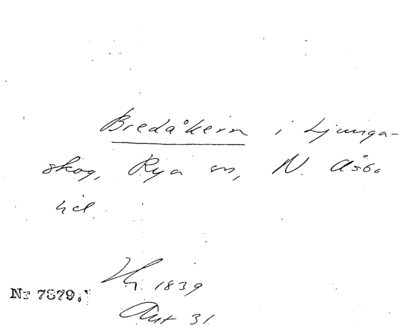 Bredåkern i Ljunga-
skog, Rya sn, N. Åsbo
hd.
Hj. 1839
Nr 7879.
Akt 31.